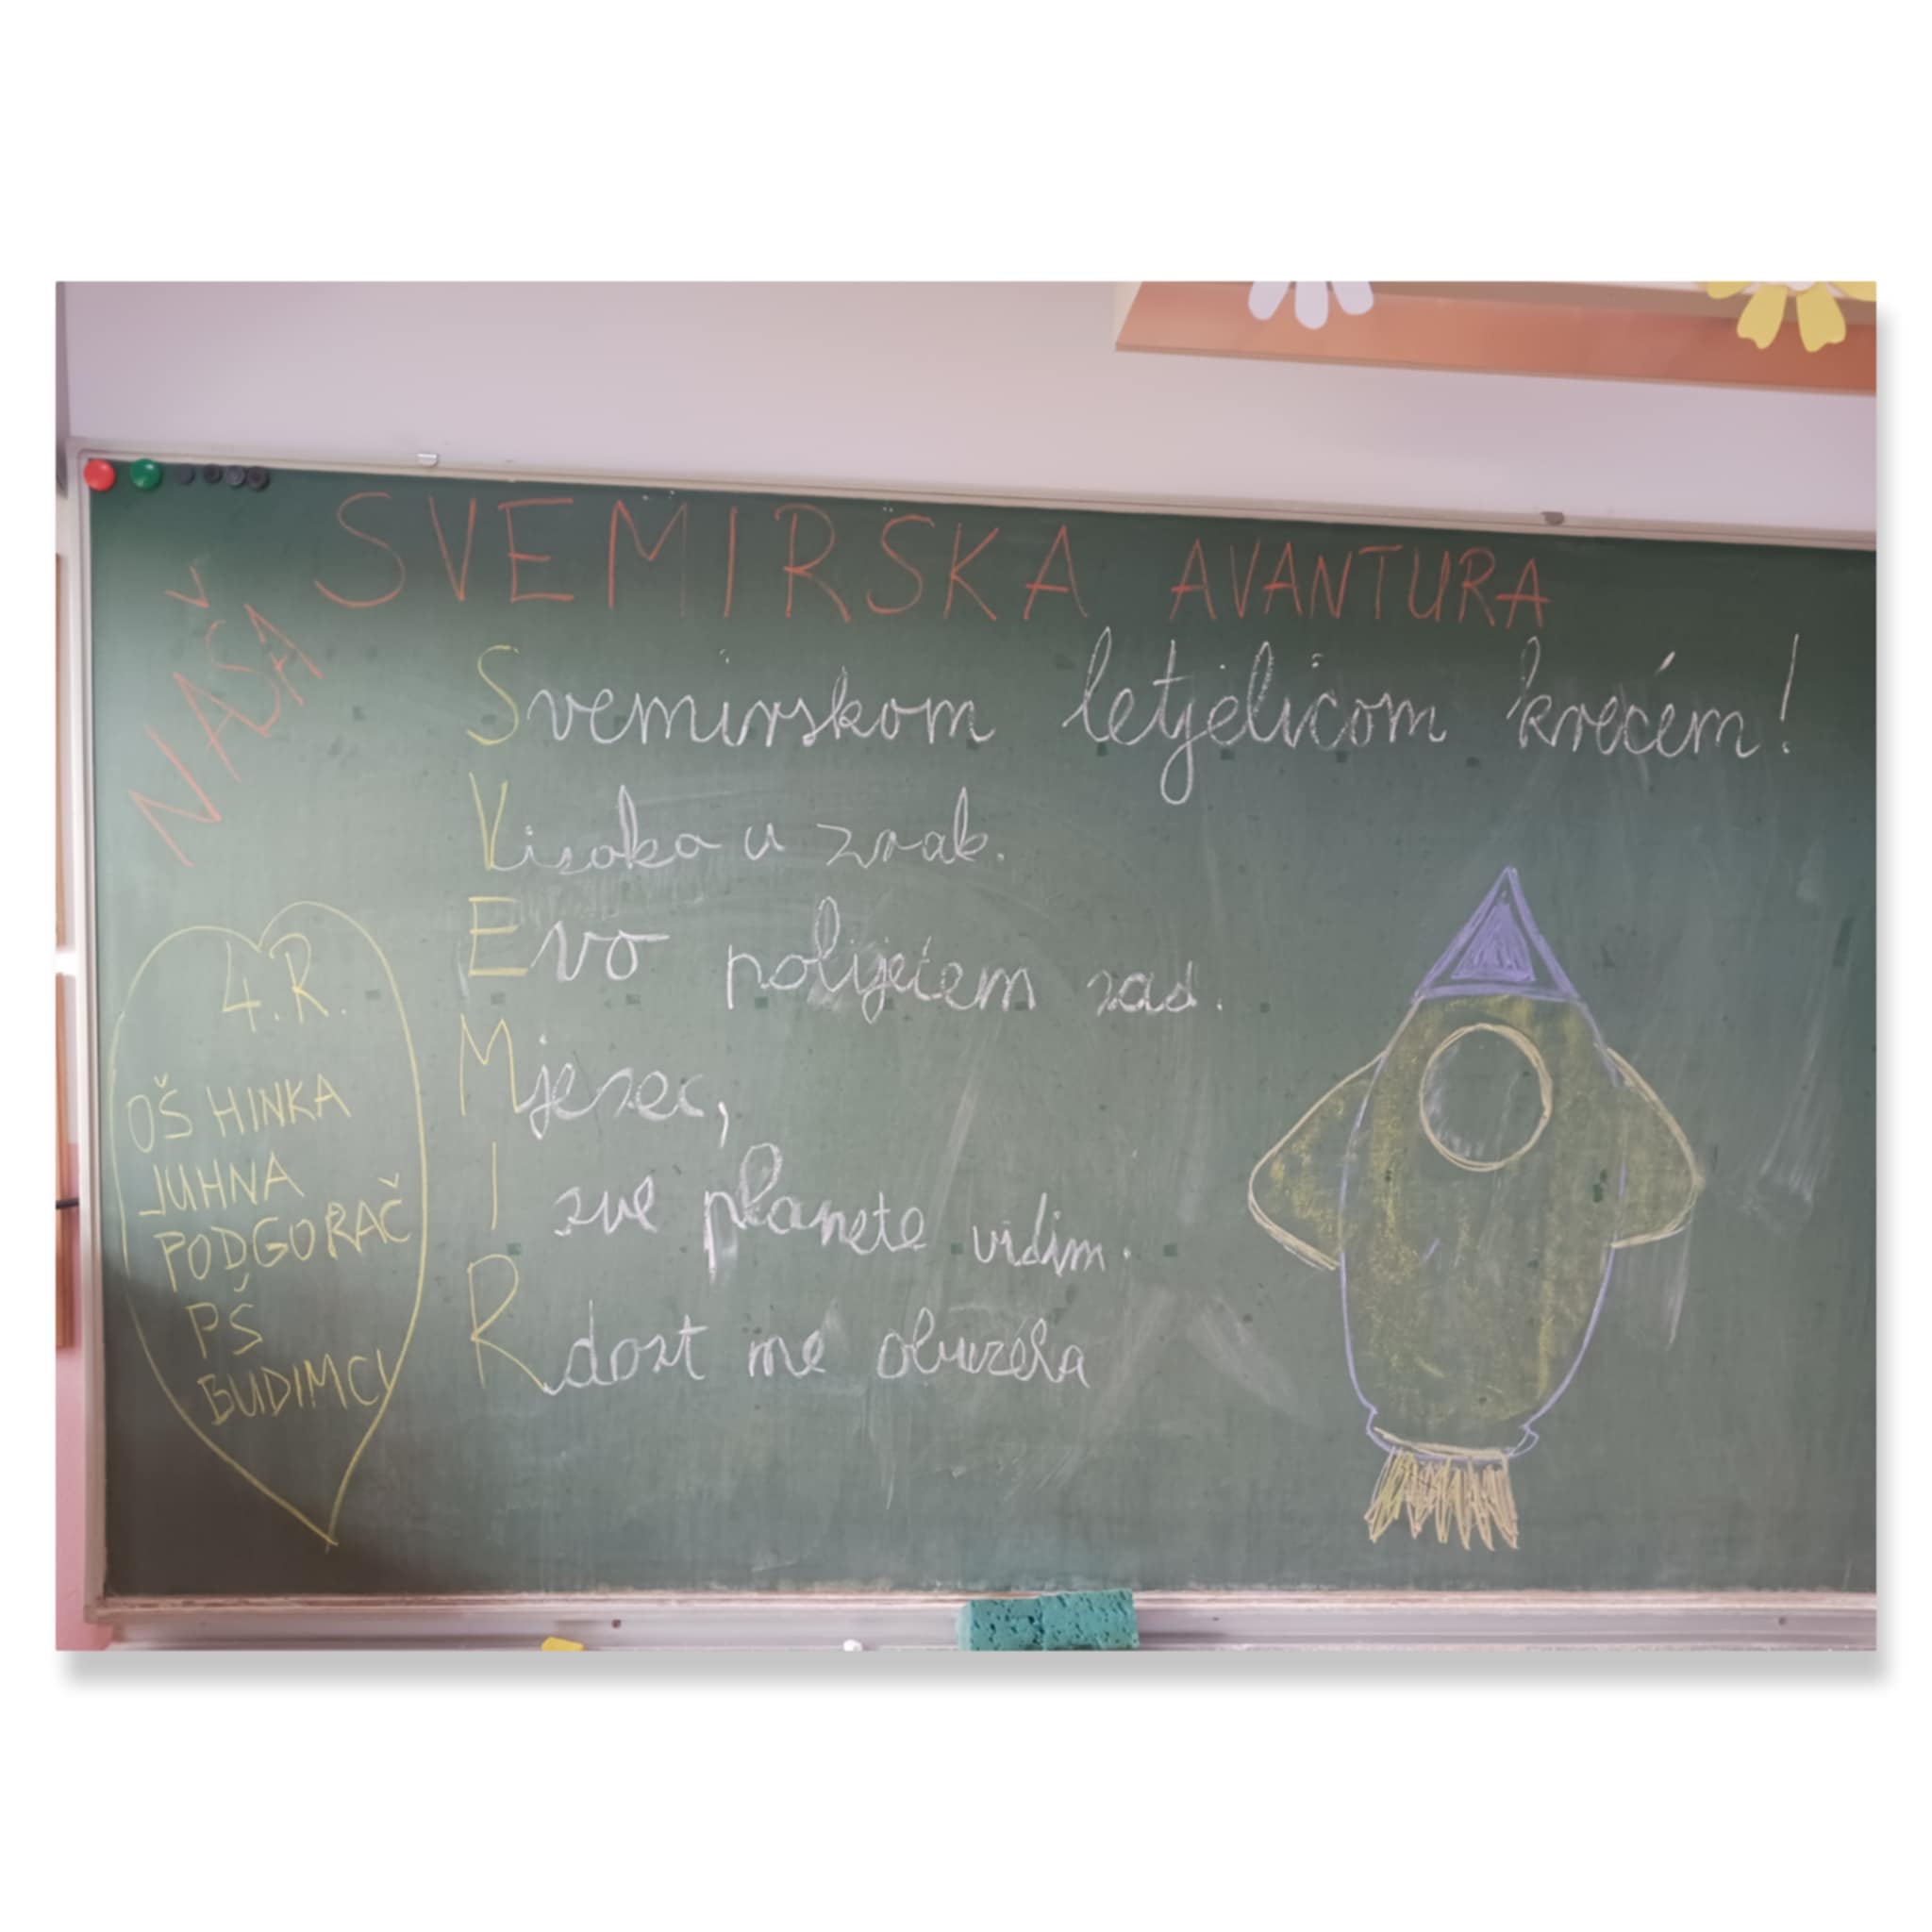 NAŠA SVEMIRSKA AVANTURA
Svemirskom letjelicom krećem!
Visoko u zrak.
Evo polijećem sad.
Mjesec,
I sve planete vidim.
Rdost me obuzela
4.R.
OŠ HINKA
JUHNA
PODGORAČ
PŠ
BUDIMCI